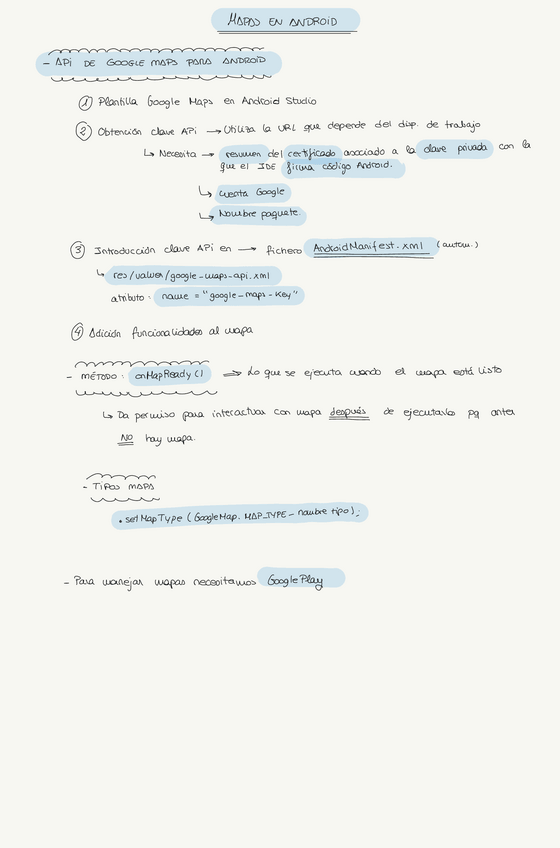 MAPAS EN ANDROID
- API DE GOOGLE MAPS PARA ANDROID
① Plantilla Google Maps en Android Studio
② Obtención clave APi → Utiliza la URL que depende del disp. de trabajo
↳ Necesita → resumen del certificado asociado a la clave privada con la
que el IDE firma código Android.
↳ cuenta Google
↳ Nombre paquete.
③ Introducción clave APi en → fichero AndroidManifest.xml (autom.)
↳ res/values/google-maps-api.xml
atributo: name = "google-maps-key"
④ Adición funcionalidades al mapa
- MÉTODO: onMapReady() ⇒ Lo que se ejecuta cuando el mapa está listo
↳ Da permiso para interactuar con mapa después de ejecutarlo pq antes
NO hay mapa.
- TIPOS MAPAS
• setMapType (GoogleMap.MAP_TYPE_nombre tipo);
- Para manejar mapas necesitamos Google Play